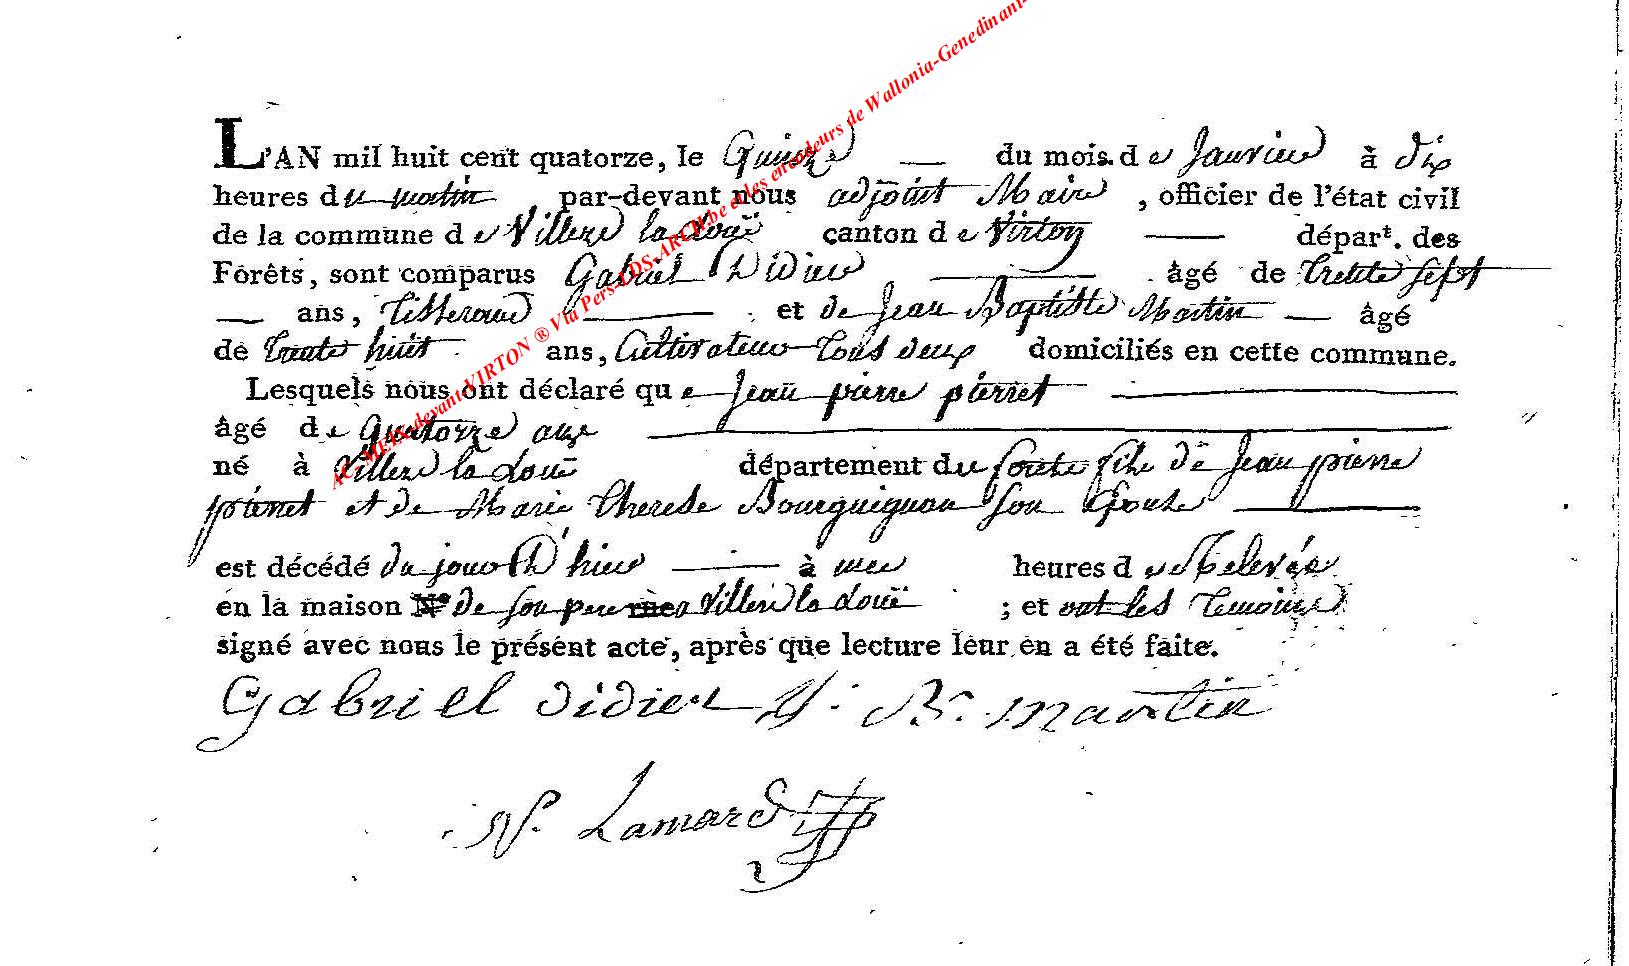 L'AN mil huit cent quatorze, le Quinze du mois de Janvier à dix
heures du matin par-devant nous adjoint Maire, officier de l'état civil
de la commune de Villers la Loüe canton de Virton départ. des
Forêts, sont comparus Gabriel Didier âgé de trente sept
ans, tisserand et de Jean Baptiste Martin âgé
de trente huit ans, Cultivateur tous deux domiciliés en cette commune.
Lesquels nous ont déclaré que Jean pierre pierret
âgé de quatorze ans
né à Villers la Loüe département du fils de Jean pierre
pierret et de Marie Therese Bourguignon son Epouse
est décédé du jour D'hier à une heures de Relevée
en la maison N.º de son pere rue a Villers la Loüe ; et ont les temoins
signé avec nous le présent acte, après que lecture leur en a été faite.
Gabriel didier J. B. martin
N. Lamard
AC MEIX-devant-VIRTON ® Via Pers-LDS-ARCH.be et les encodeurs de Wallonia-Genedinant-